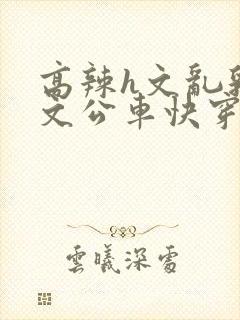 高辣h文乱乳
文公車快穿
雲曦深處